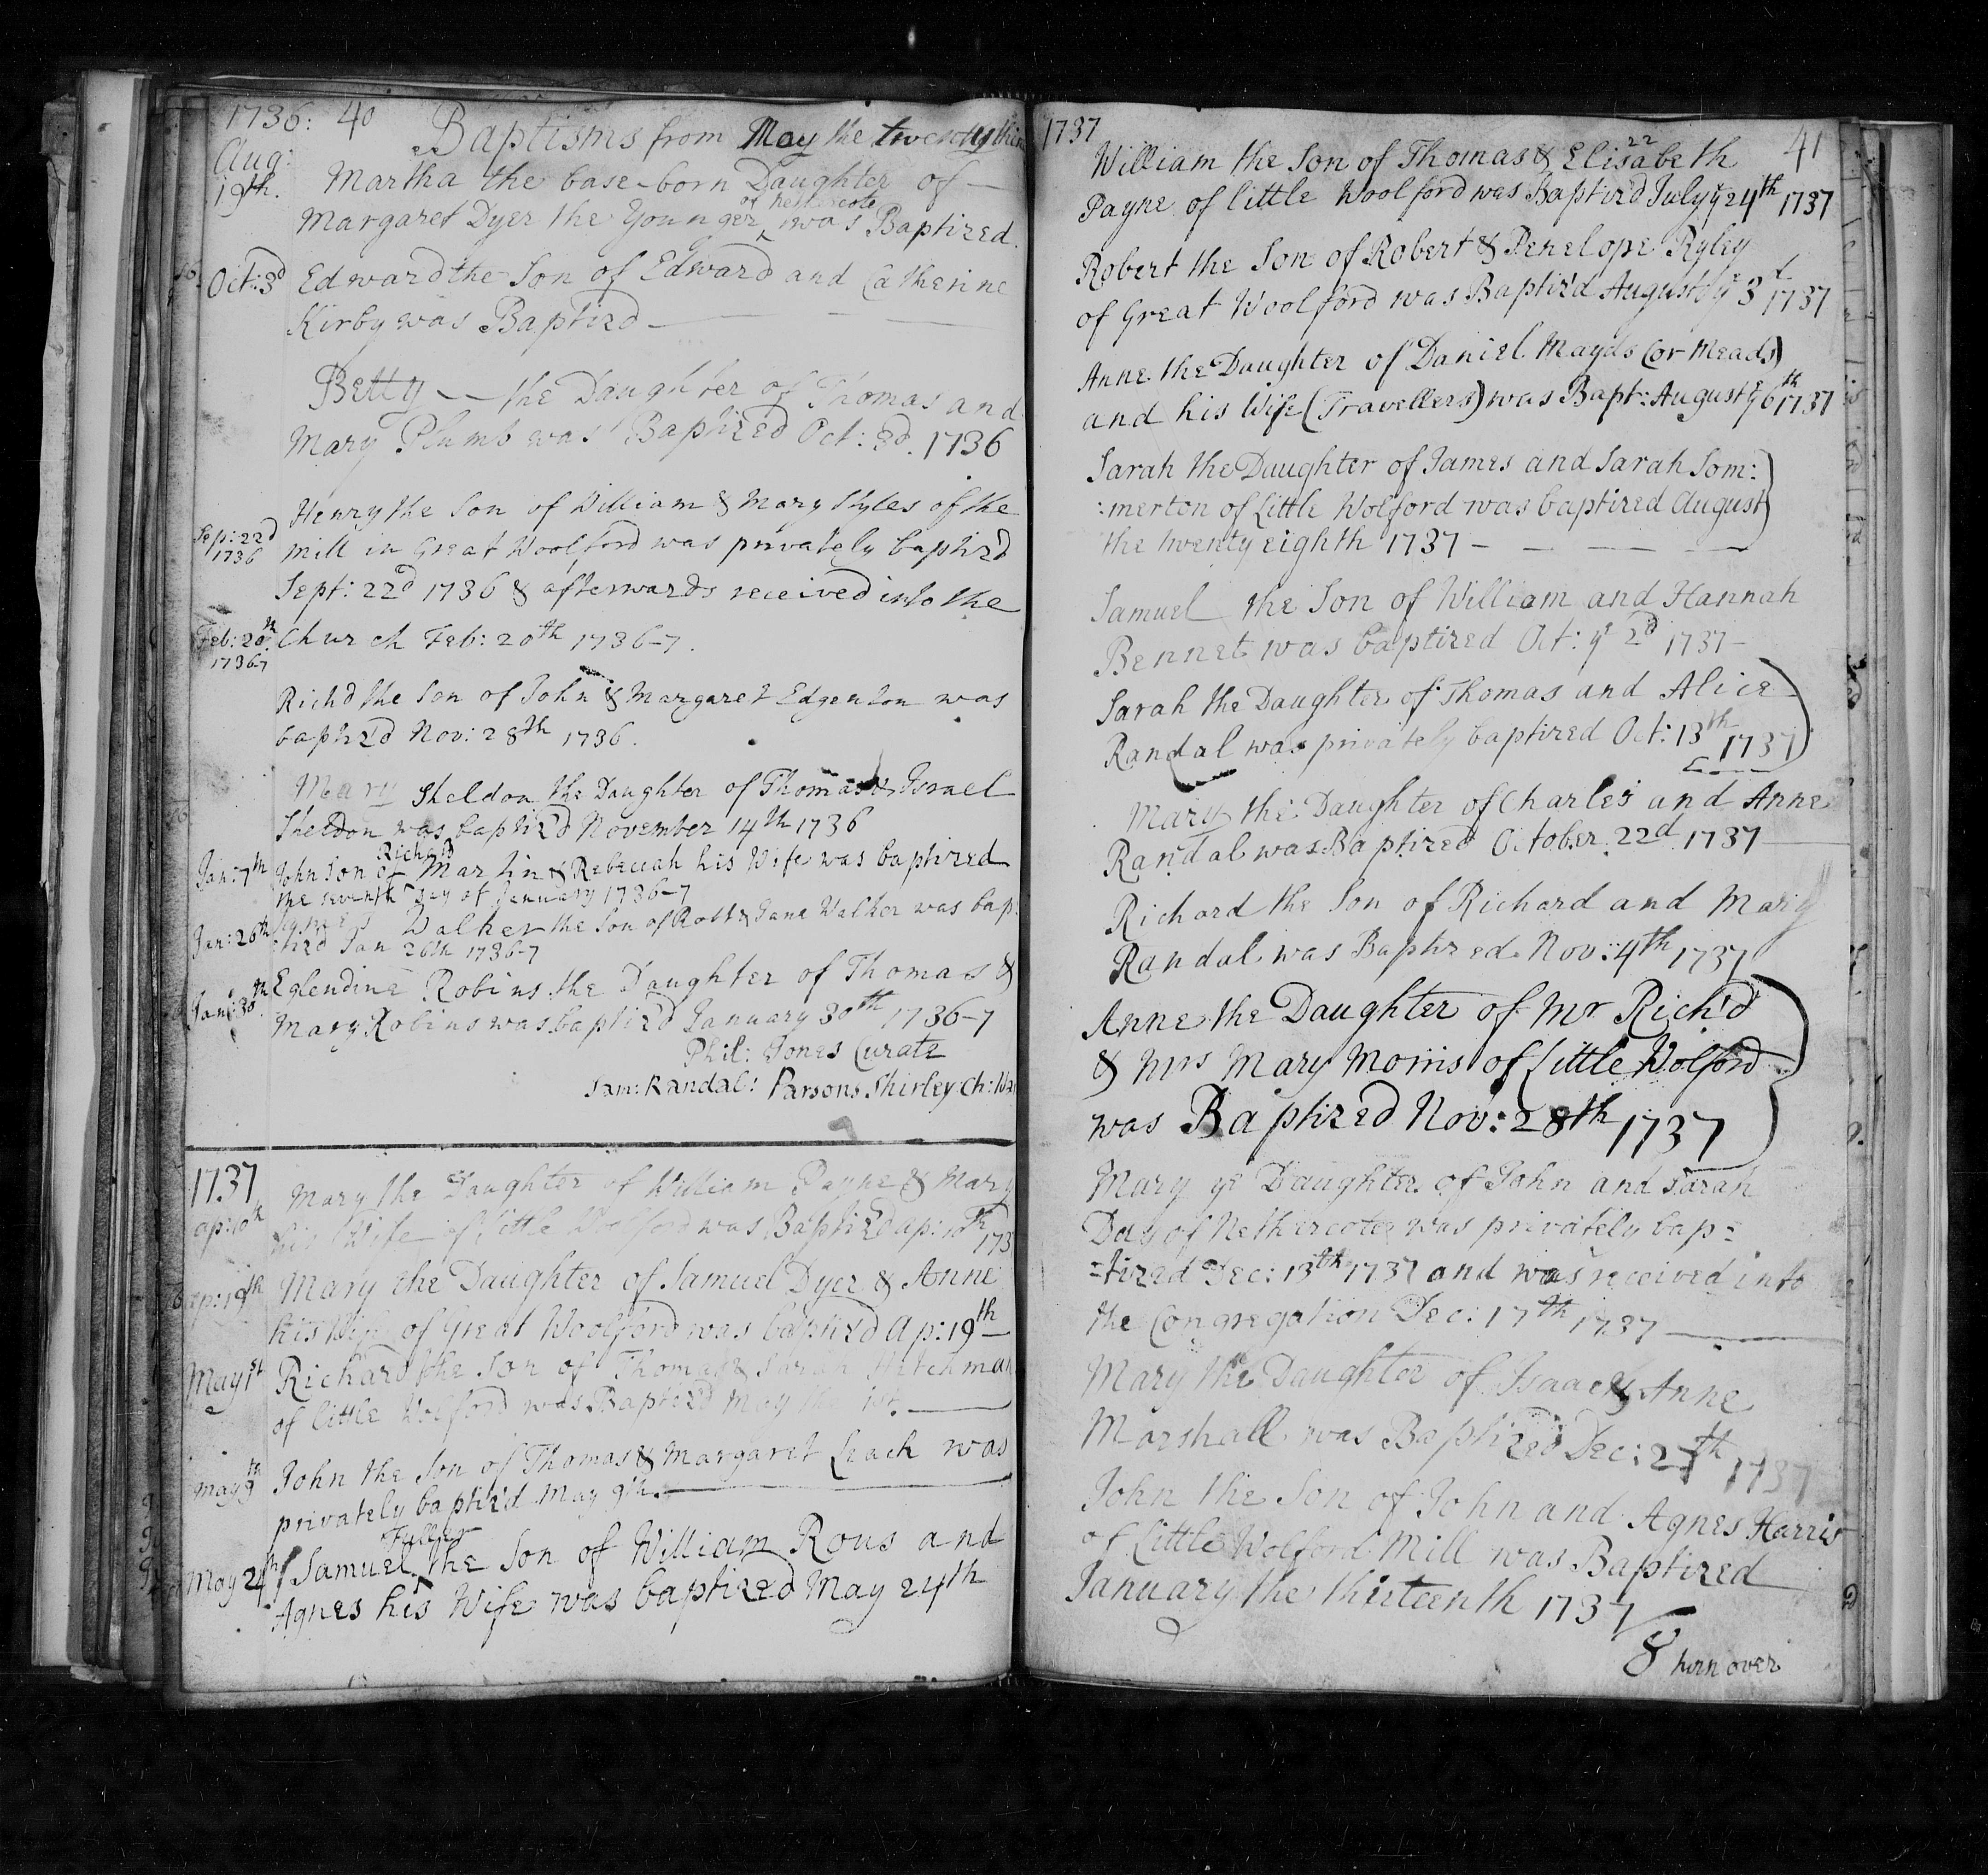 1736: 40 Baptisms from May the twenty
Aug: 19th. Martha the base-born Daughter of —
of Nethercote
Margaret Dyer the Younger ‸ was Baptized.
Oct: 3d Edward the Son of Edward and Catherine
Kirby was Baptizd — — —
Betty — — the Daughter of Thomas and
Mary Plumb was Baptized Oct: 3d. 1736
Henry the Son of William & Mary Styles of the
Sep: 22d 1736 mill in Great Woolford was privately baptiz'd
Sept: 22d 1736 & afterwards received into the
Feb: 20th 1736-7 Church Feb: 20th 1736-7.
Rich'd the Son of John & Margaret Edgerton was
baptiz'd Nov: 28th 1736.
Mary Sheldon the Daughter of Thomas & Israel
Sheldon was baptiz'd November 14th 1736
Richard
Jan: 7th John Son of Martin & Rebeccah his Wife was baptized
the seventh Day of January 1736-7
James Walker the Son of Robt & Jane Walker was bap
Jan: 26th tiz'd Jan 26th 1736-7
Eglendine Robins the Daughter of Thomas &
Jan: 30th Mary Robins was baptiz'd January 30th 1736-7
Phil: Jones Curate
Sam: Randal: Parsons Shirley Ch: Wa
1737 Mary the Daughter of William Payne & Mary
ap: 10th his Wife of little Wolford was Baptiz'd ap: 10th 173
Mary the Daughter of Samuel Dyer & Anne
ap: 19th his Wife of Great Woolford was baptized Ap: 19th —
May 1st Richard the Son of Thomas & Sarah Hitchman
of little Wolford was Baptiz'd May the 1st. —
John the Son of Thomas & Margaret Leach was
may 9th privately baptiz'd may 9th. —
Fuller
May 24th Samuel ‸ the Son of William Rous and
Agnes his Wife was baptized May 24th
1737 41
22
William the Son of Thomas & Elisabeth
Payne of little Woolford was Baptiz'd July ye 24th 1737
Robert the Son of Robert & Penelope Ryley
of Great Woolford was Baptiz'd August ye 3d 1737
Anne the Daughter of Daniel Mayds (or Meads)
and his Wife (Travellers) was Bapt: August ye 6th 1737
Sarah the Daughter of James and Sarah Som:
:merton of Little Wolford was baptized August
the twenty eighth 1737 — — — —
Samuel the Son of William and Hannah
Bennet was baptized Oct: ye 2d 1737 —
Sarah the Daughter of Thomas and Alice
Randal was privately baptized Oct: 13th 1737
Mary the Daughter of Charles and Anne
Randal was Baptized October 22d 1737
Richard the Son of Richard and Mary
Randal was Baptized Nov: 4th 1737
Anne the Daughter of Mr Rich'd
& Mrs Mary Morris of Little Wolford
was Baptized Nov: 28th 1737
Mary ye Daughter of John and Sarah
Day of Nethercote was privately bap=
=tized Dec: 13th 1737 and was received into
the Congregation Dec: 17th 1737 —
Mary the Daughter of Isaac & Anne
Marshall was Baptized Dec: 27th 1737
John the Son of John and Agnes Harris
of Little Wolford Mill was Baptized
January the thirteenth 1737/8
turn over